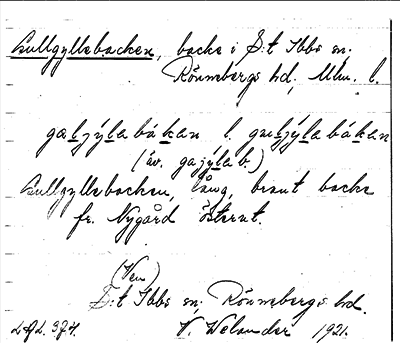 Gullgyllebacken, backe i S:t Ibbs sn.
Rönnebergs hd, Mlm. l.
galjýlabákan l. guljýlabákan
(äv. gajýlab.)
Gullgyllebacken, lång, brant backe
fr. Nygård österut.
(Ven)
S:t Ibbs sn; Rönnebergs hd.
L.A.L. 374. V. Welander 1921.